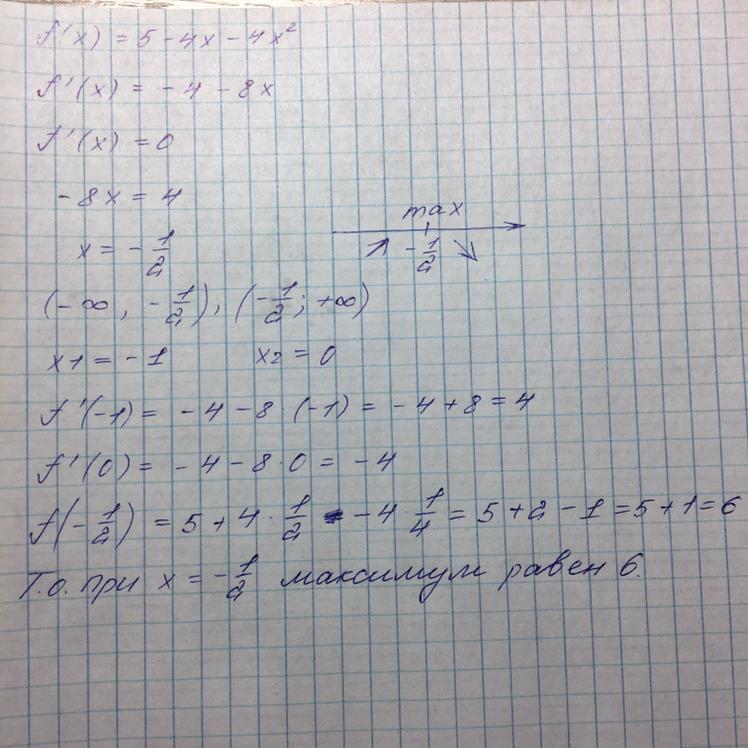 f(x) = 5 - 4x - 4x²
f'(x) = -4 - 8x
f'(x) = 0
-8x = 4
max
x = -1/2
↗ -1/2 ↘
(-∞, -1/2), (-1/2; +∞)
x1 = -1 x2 = 0
f'(-1) = -4 - 8·(-1) = -4 + 8 = 4
f'(0) = -4 - 8·0 = -4
f(-1/2) = 5 + 4·1/2 - 4·1/4 = 5 + 2 - 1 = 5 + 1 = 6
Т.о. при x = -1/2 максимум равен 6.